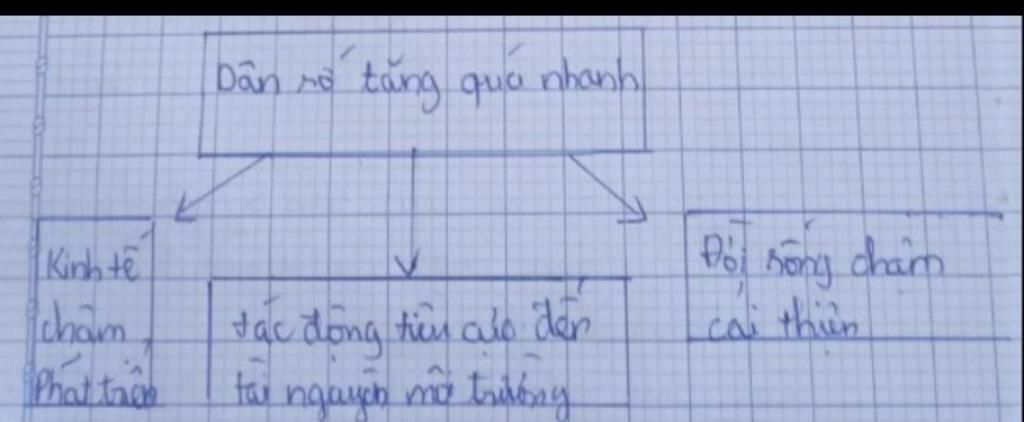 Dân số tăng quá nhanh
Kinh tế
chậm
Phát triển
tác động tiêu cực đến
tài nguyên môi trường
Đời sống chậm
cải thiện